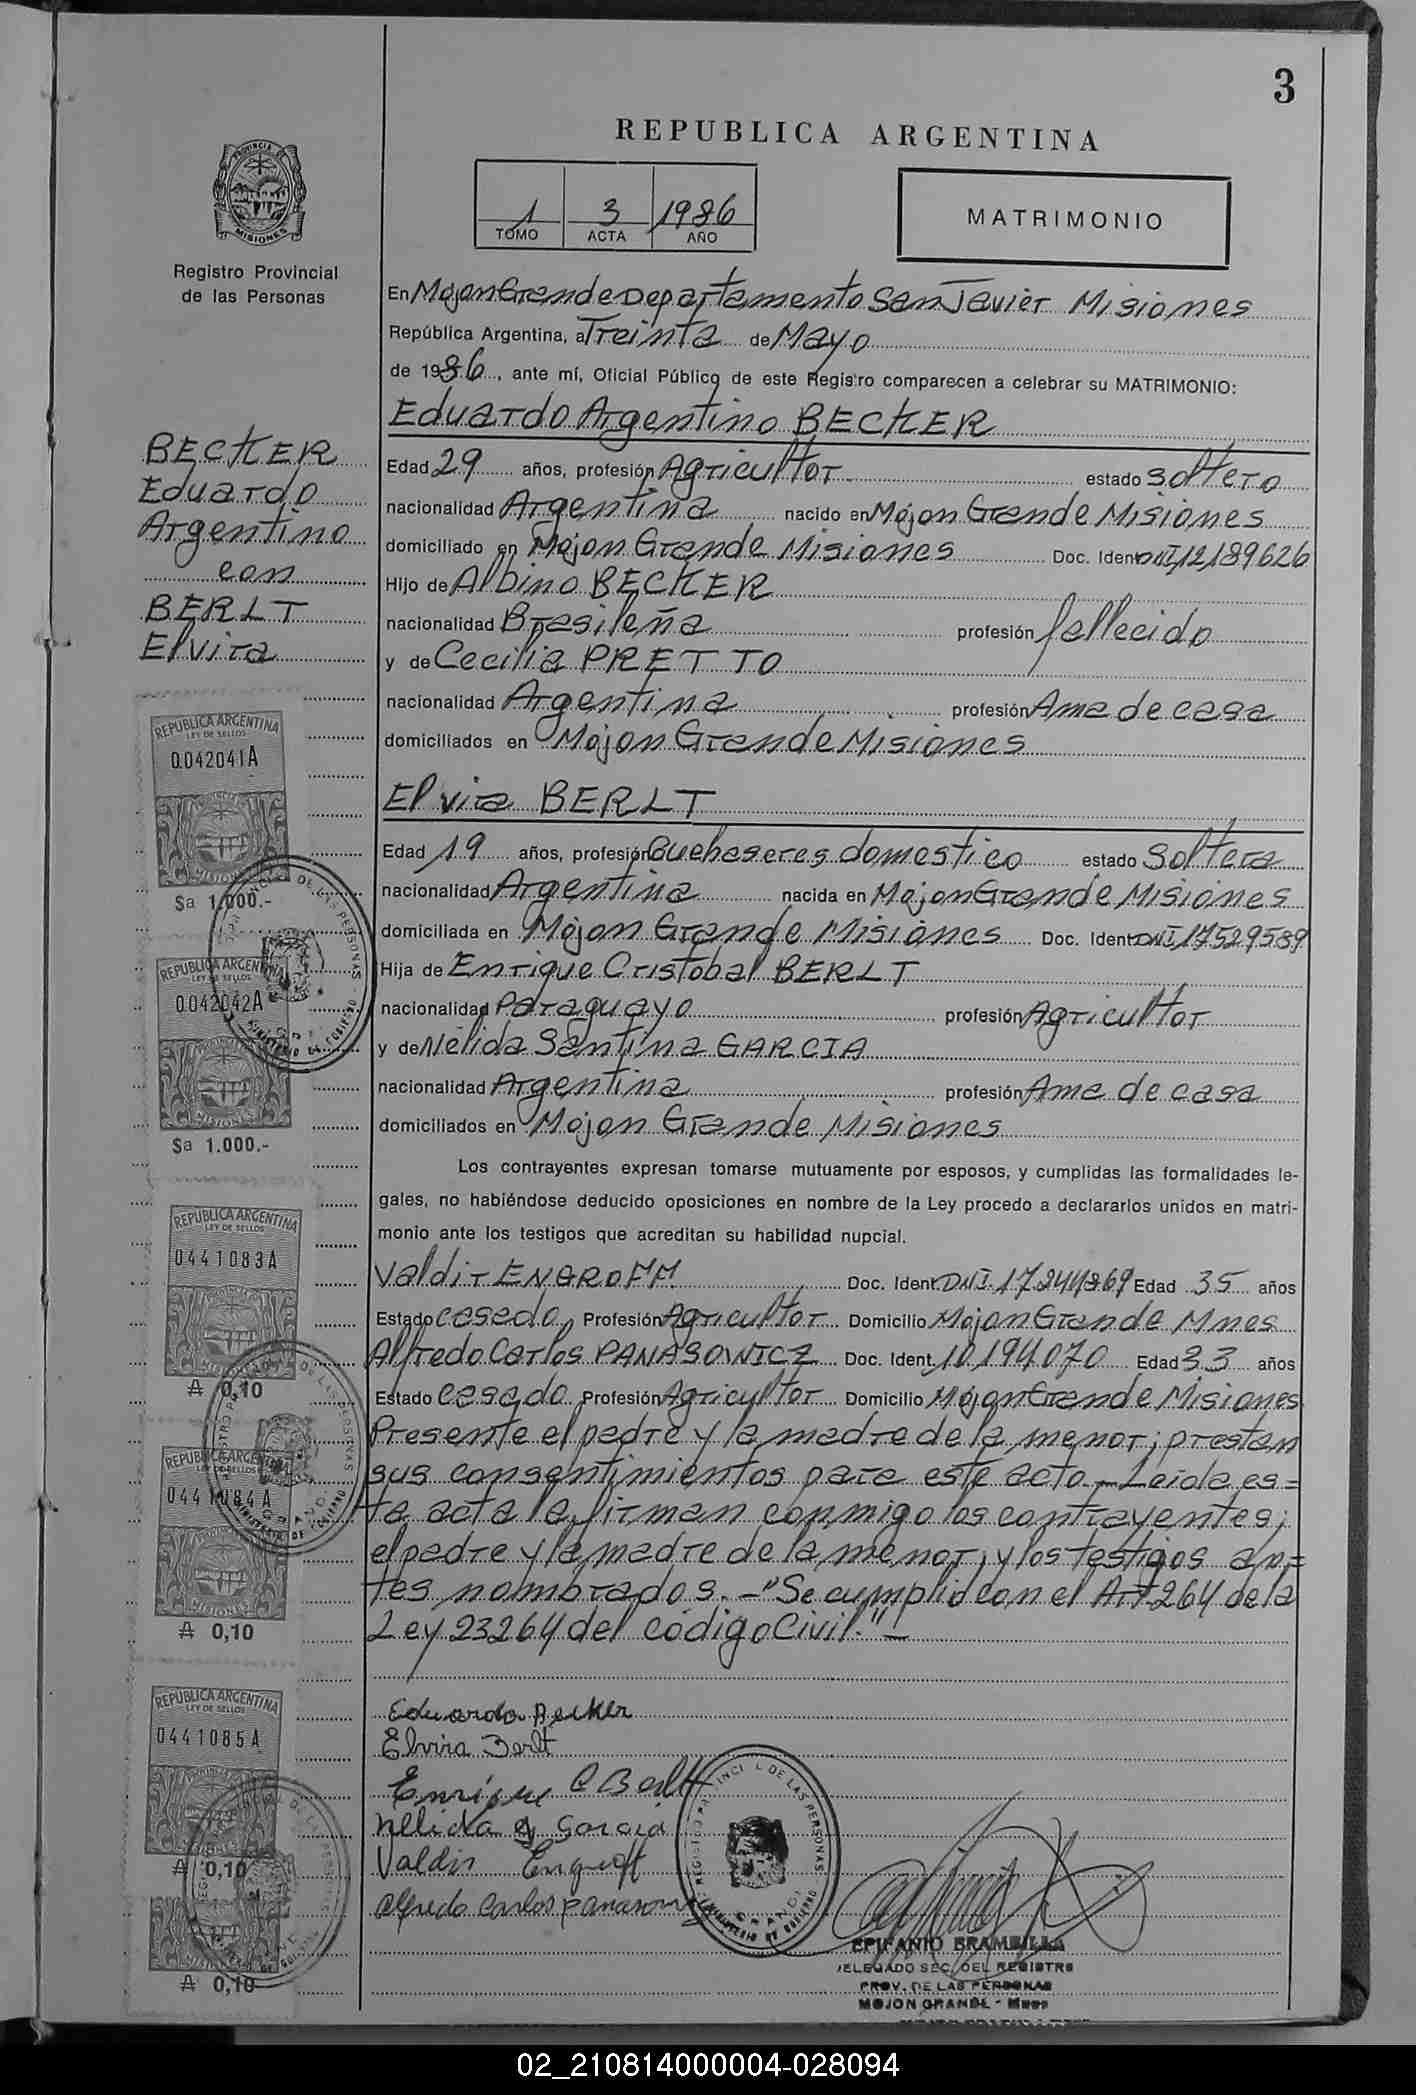 3
REPUBLICA ARGENTINA
1 3 1986
TOMO ACTA AÑO
MATRIMONIO
PROVINCIA DE
MISIONES
Registro Provincial
de las Personas
En Mojon Grande Departamento San Javier Misiones
República Argentina, a Treinta de Mayo
de 1986, ante mí, Oficial Público de este Registro comparecen a celebrar su MATRIMONIO:
Eduardo Argentino BECKER
Edad 29 años, profesión Agricultor estado soltero
nacionalidad Argentina nacido en Mojon Grande Misiones
domiciliado en Mojon Grande Misiones Doc. Ident. DNI 12189626
Hijo de Albino BECKER
nacionalidad Brasileña profesión fallecido
y de Cecilia PRETTO
nacionalidad Argentina profesión Ama de casa
domiciliados en Mojon Grande Misiones
Elvira BERLT
Edad 19 años, profesión Quehaseres domestico estado Soltera
nacionalidad Argentina nacida en Mojon Grande Misiones
domiciliada en Mojon Grande Misiones Doc. Ident. DNI 17529589
Hija de Enrique Cristobal BERLT
nacionalidad Paraguayo profesión Agricultor
y de Nélida Santina GARCIA
nacionalidad Argentina profesión Ama de casa
domiciliados en Mojon Grande Misiones
Los contrayentes expresan tomarse mutuamente por esposos, y cumplidas las formalidades le-
gales, no habiéndose deducido oposiciones en nombre de la Ley procedo a declararlos unidos en matri-
monio ante los testigos que acreditan su habilidad nupcial.
Valdir ENGROFF Doc. Ident. DNI. Edad 35 años
Estado casado Profesión Agricultor Domicilio Mojon Grande Mnes
Alfredo Carlos PANASOWICZ Doc. Ident. 10.194.070 Edad 33 años
Estado casado Profesión Agricultor Domicilio Mojon Grande Misiones
Presente el padre y la madre de la menor; prestan
sus consentimientos para este acto.- Leida es=
ta acta la firman conmigo los contrayentes;
el padre y la madre de la menor, y los testigos an=
tes nombrados.- "Se cumplio con el Art 264 de la
Ley 23264 del código Civil."-
BECKER
Eduardo
Argentino
con
BERLT
Elvira
REPUBLICA ARGENTINA
LEY DE SELLOS
0042041A
MISIONES
$a 1.000.-
REPUBLICA ARGENTINA
LEY DE SELLOS
0042042A
MISIONES
$a 1.000.-
REPUBLICA ARGENTINA
LEY DE SELLOS
0441083A
₳ 0,10
REPUBLICA ARGENTINA
LEY DE SELLOS
0441084A
MISIONES
₳ 0,10
REPUBLICA ARGENTINA
LEY DE SELLOS
0441085A
₳ 0,10
₳ 0,10
Eduardo Becker
Elvira Berlt
Enrique C Berlt
Nelida S Garcia
Valdir Engroff
Alfredo Carlos Panasowicz
DE LAS PERSONAS
MINISTERIO DE GOBIERNO
EPIFANIO BRAMBILLA
DELEGADO SEC. DEL REGISTRO
PROV. DE LAS PERSONAS
MOJON GRANDE - Mnes
02_210814000004-028094